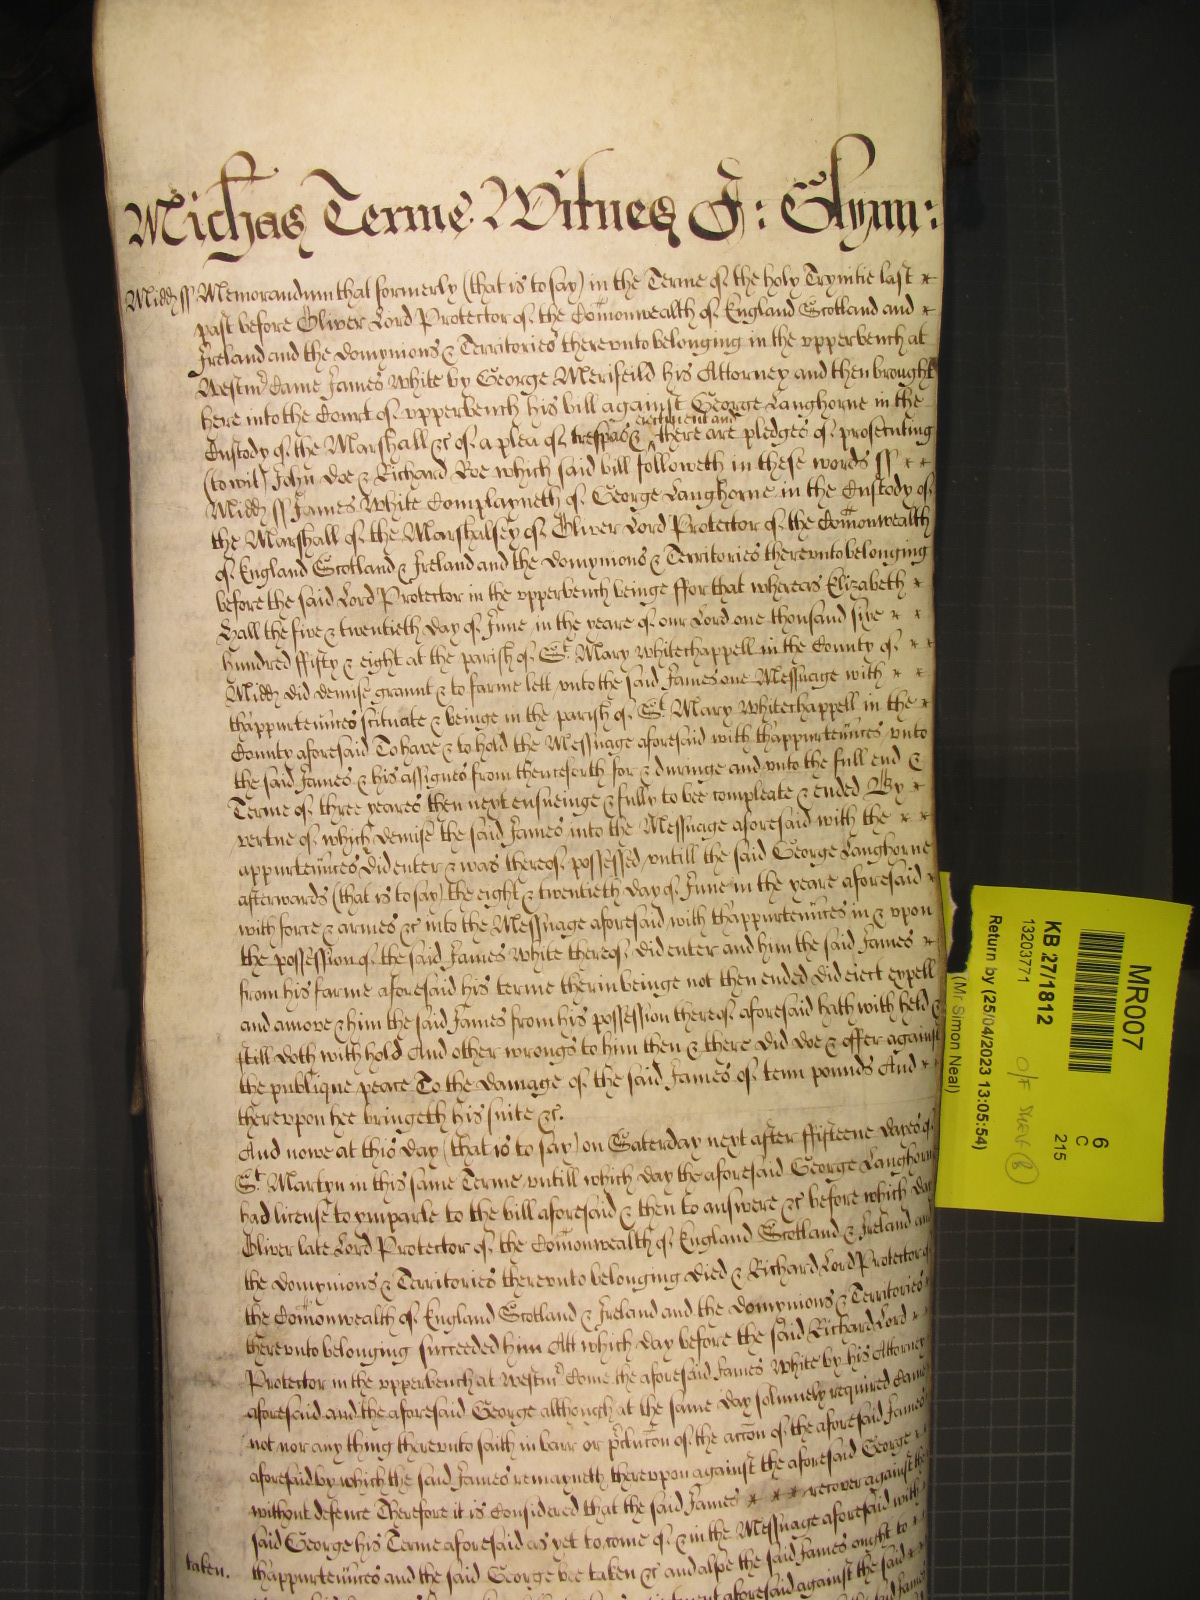 Michas Terme Witnes J: Glynn:
Midd ss Memorandum that formerly (that is to say) in the Terme of the holy Trynitie last
past before Oliver Lord Protector of the Comonwealth of England Scotland and
Ireland and the domynions & Territories therevnto belonging in the vpperbench at
Westmr Came James White by George Meriseild his Attorney and then brought
here into the Court of vpperbench his bill against George Langhorne in the
Custody of the Marshall &c of a plea of trespas & eiectment and there are pledges of prosecuting
(to wit) John Doe & Richard Roe which said bill followeth in these words ss
Midd ss James White Complayneth of George Langhorne in the Custody of
the Marshall of the Marshalsey of Oliver Lord Protector of the Comonwealth
of England Scotland & Ireland and the domynions & Territories therevnto belonging
before the said Lord Protector in the vpperbench beinge ffor that whereas Elizabeth
Hall the five & twentieth day of June in the yeare of our Lord one thousand sixe
hundred ffifty & eight at the parish of St. Mary Whitechappell in the County of
Midd did demise graunt & to farme lett vnto the said James one Messuage with
thappurtennces scituate & beinge in the parish of St. Mary Whitechappell in the
County aforesaid To have & to hold the Messuage aforesaid with thappurtennces vnto
the said James & his assignes from thenceforth for & duringe and vnto the full end &
Terme of three yeares then next ensueinge & fully to bee compleate & ended By
vertue of which demise the said James into the Messuage aforesaid with the
appurtennces did enter & was thereof possessed vntill the said George Langhorne
afterwards (that is to say) the eight & twentieth day of June in the yeare aforesaid
with force & armes &c into the Messuage aforesaid with thappurtennces in & vpon
the possession of the said James White thereof did enter and him the said James
from his farme aforesaid his terme therin beinge not then ended did eiect expell
and amove & him the said James from his possession thereof aforesaid hath with held &
still doth with hold And other wrongs to him then & there did doe & offer against
the publique peace To the damage of the said James of tenn pounds And
therevpon hee bringeth his suite &c.
And nowe at this day (that is to say) on Saterday next after ffifteene dayes of
St. Martyn in this same Terme vntill which day the aforesaid George Langhorn
had license to ymparle to the bill aforesaid & then to answere &c before which day
Oliver late Lord Protector of the Comonwealth of England Scotland & Ireland and
the domynions & Territories therevnto belonging died & Richard Lord Protector of
the Comonwealth of England Scotland & Ireland and the domynions & Territories
therevnto belonging succeeded him Att which day before the said Richard Lord
Protector in the vpperbench at Westmr Come the aforesaid James White by his Attorney
aforesaid and the aforesaid George although at the same day solemnely required Came
not nor any thing therevnto saith in barr or pclucon of the accon of the aforesaid James
aforesaid by which the said James remayneth therevpon against the aforesaid George
without defence Therefore it is Considered that the said James recover against the
said George his Terme aforesaid as yet to come of & in the Messuage aforesaid with
taken. thappurtennces and the said George bee taken &c and alsoe the said James ought to
aforesaid against the said
MR007
6
C
215
KB 27/1812
13203771
O/F Shelf B
Return by (25/04/2023 13:05:54)
(Mr Simon Neal)